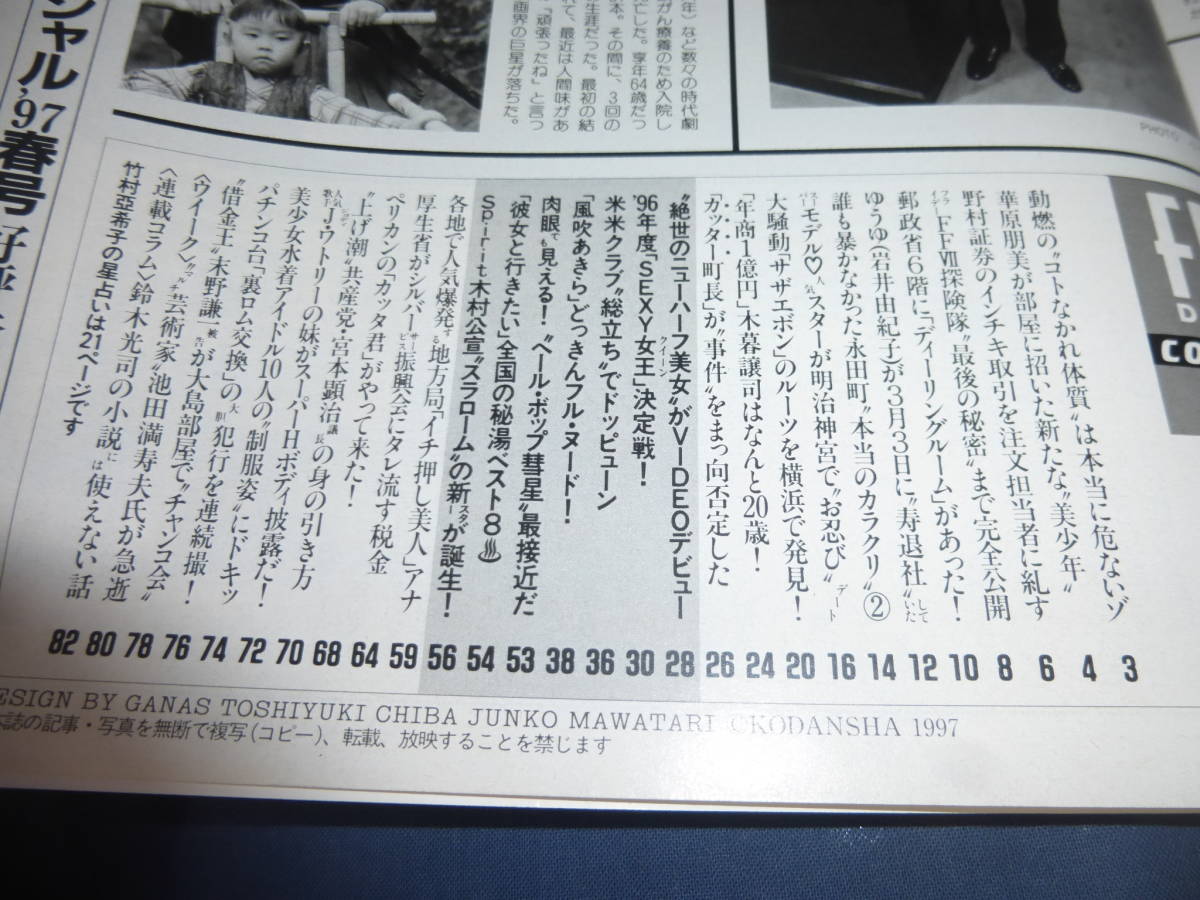 ンャル'97春号
年）など数々の時代劇
がん療養のため入院し
亡した。享年64歳だっ
本。その間に、3回の
生涯だった。最初の結
れて、最近は人間味があ
「頑張ったね」と言っ
画界の巨星が落ちた。
PHOTO
CO
動燃の〝コトなかれ体質〟は本当に危ないゾ 3
華原朋美が部屋に招いた新たな〝美少年〟 4
野村証券のインチキ取引を注文担当者に糺す 6
FFⅦ探険隊〝最後の秘密〟まで完全公開 8
郵政省6階に「ディーリングルーム」があった！ 10
ゆうゆ（岩井由紀子）が3月3日に〝寿退社〟していた 12
誰も暴かなかった永田町〝本当のカラクリ〟② 14
スーパーモデル♡人気スターが明治神宮で〝お忍びデート〟 16
大騒動「サザエボン」のルーツを横浜で発見！ 20
「年商1億円」木暮譲司はなんと20歳！ 24
「ガッター町長」が〝事件〟をまっ向否定した 26
〝絶世のニューハーフ美女〟がVIDEOデビュー 28
'96年度「SEXY女王」決定戦！ 30
米米クラブ〝総立ち〟でドッピューン 36
「風吹あきら」どっきんフル・ヌード！ 38
肉眼でも見える！〝ヘール・ボップ彗星〟最接近だ 53
「彼女と行きたい」全国の秘湯ベスト8♨ 54
Spirit木村公宣〝スラローム〟の新スターが誕生！ 56
各地で人気爆発する地方局「イチ押し美人」アナ 59
厚生省がシルバーサービス振興会にタレ流す税金 64
ペリカンの「カッタ君」がやって来た！ 68
〝上げ潮〟共産党・宮本顕治議長の身の引き方 70
人気歌手J・ウトリーの妹がスーパーHボディ披露だ！ 72
美少女水着アイドル10人の〝制服姿〟にドキッ 74
パチンコ台「裏ロム交換」の大胆犯行を連続撮！ 76
〝借金王〟末野謙一被告が大島部屋で〝チャンコ会〟 78
〈ウイーク〉マルチ芸術家〝池田満寿夫氏が急逝 80
〈連載コラム〉鈴木光司の小説には使えない話 82
竹村亞希子の星占いは21ページです
DESIGN BY GANAS TOSHIYUKI CHIBA JUNKO MAWATARI ©KODANSHA 1997
本誌の記事・写真を無断で複写（コピー）、転載、放映することを禁じます